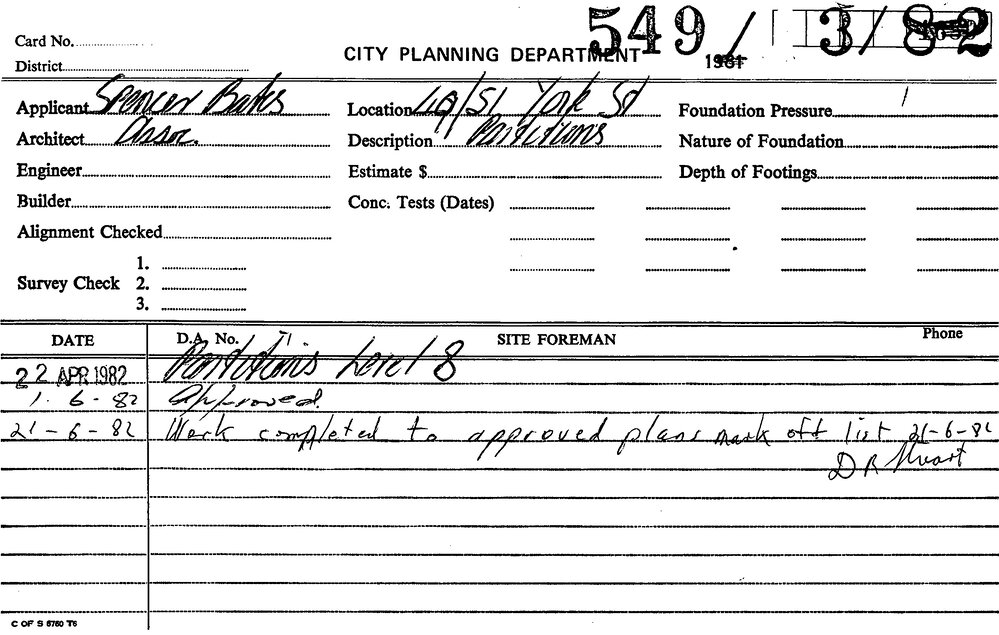 549/ 3/82
Card No.
CITY PLANNING DEPARTMENT 1981
District
Applicant Spencer Bates Location 49/51 York St Foundation Pressure
Architect Assoc. Description Partitions Nature of Foundation
Engineer Estimate $ Depth of Footings
Builder Conc. Tests (Dates)
Alignment Checked
1.
Survey Check 2.
3.
DATE D.A. No. SITE FOREMAN Phone
22 APR 1982 Partitions Level 8
1. 6 - 82 Approved.
21 - 6 - 82 Work completed to approved plans mark off list 21-6-82
D R Stuart
C OF S 6760 T6